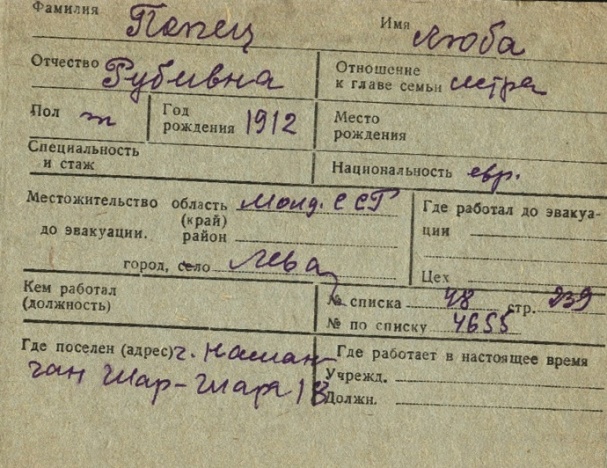 Фамилия Патец Имя Люба
Отчество Рубивна Отношение к главе семьи сестра
Пол ж Год рождения 1912 Место рождения
Специальность и стаж Национальность евр.
Местожительство область Молд. ССР Где работал до эвакуа-
(край) ции
до эвакуации. район
город, село Лева Цех
Кем работал № списка 48 стр. 239
(должность) № по списку 4655
Где поселен (адрес) г. Наман Где работает в настоящее время
ган Шар-Шара 13 Учрежд.
Должн.